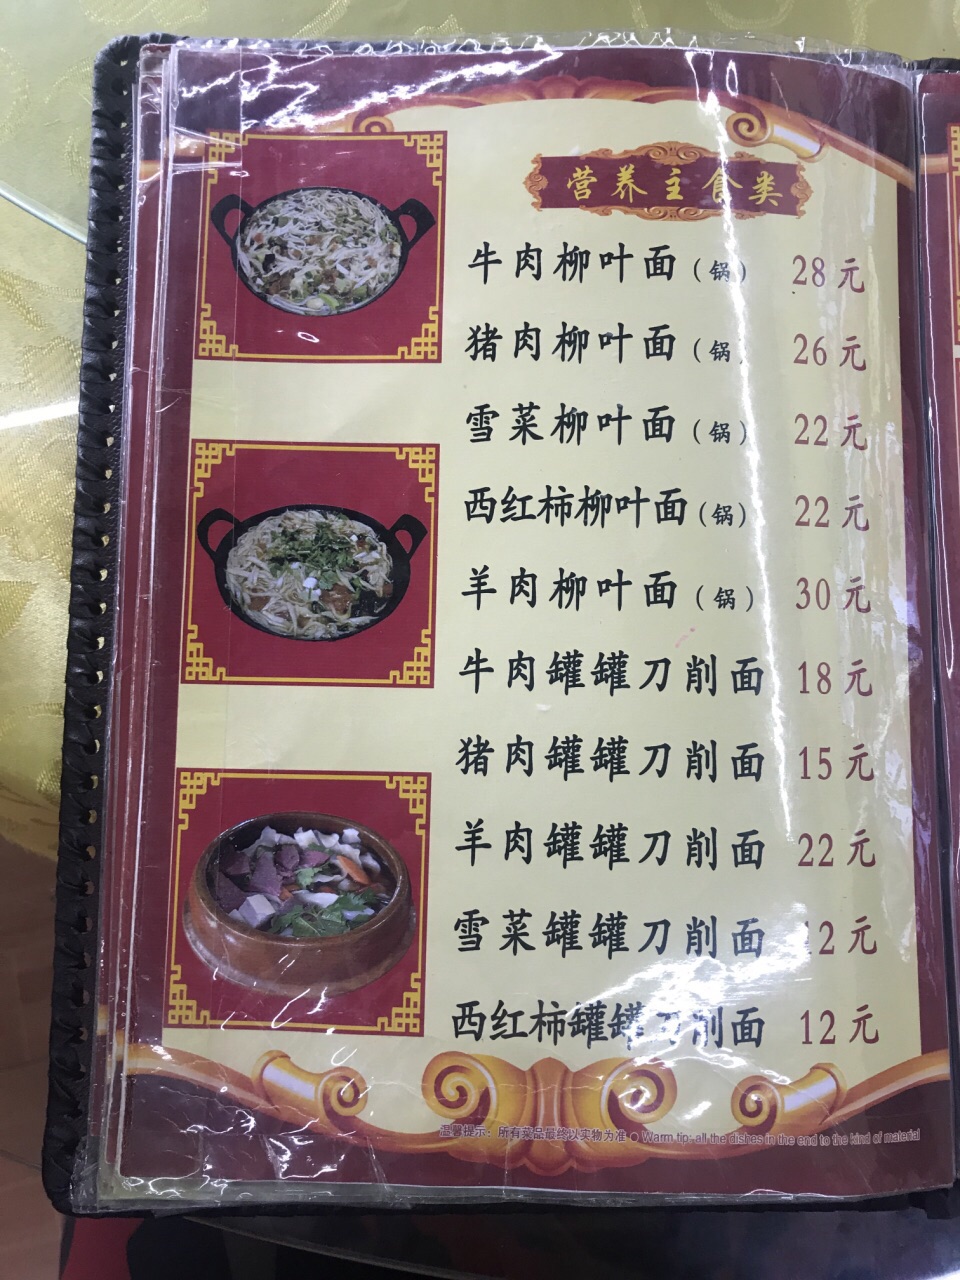 营养主食类
牛肉柳叶面(锅) 28元
猪肉柳叶面(锅) 26元
雪菜柳叶面(锅) 22元
西红柿柳叶面(锅) 22元
羊肉柳叶面(锅) 30元
牛肉罐罐刀削面 18元
猪肉罐罐刀削面 15元
羊肉罐罐刀削面 22元
雪菜罐罐刀削面 12元
西红柿罐罐刀削面 12元
温馨提示：所有菜品最终以实物为准 ● Warm tip: all the dishes in the end to the kind of material